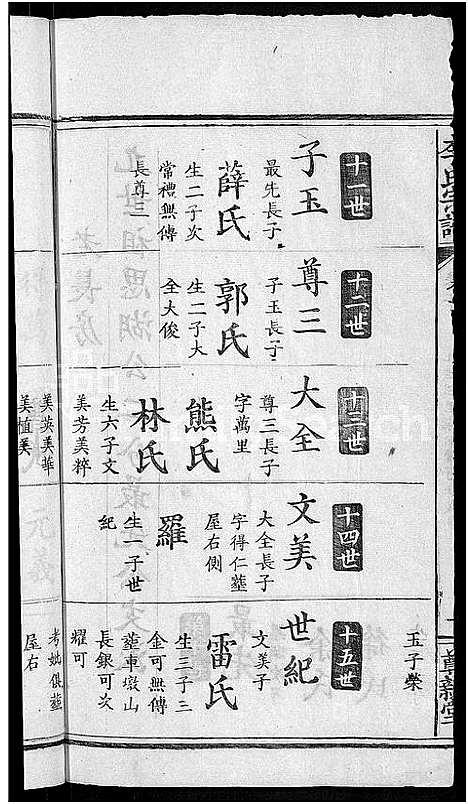 玉子榮
十一世
子玉
最先長子
薛氏
生二子次
常禮無傳
長尊三
十二世
尊三
子玉長子
郭氏
生二子大
全大俊
十三世
大全
尊三長子
字萬里
熊氏
林氏
生六子文
美芳美粹
美英美華
美植美
十四世
文美
大全長子
字得仁葬
屋右側
羅
生一子世
紀
十五世
世紀
文美子
雷氏
生三子三
金可無傳
葬車墩山
長銀可次
耀可
考妣俱葬
屋右